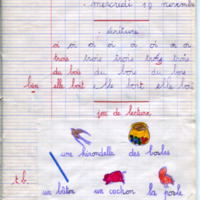 mercredi 19 novembre
écriture
oi oi oi oi oi oi oi oi
trois trois trois trois trois
du bois du bois du bois
bien elle boit elle boit elle boit
jeu de lecture
une hirondelle des boules
t.b.
un bâton un cochon la poule